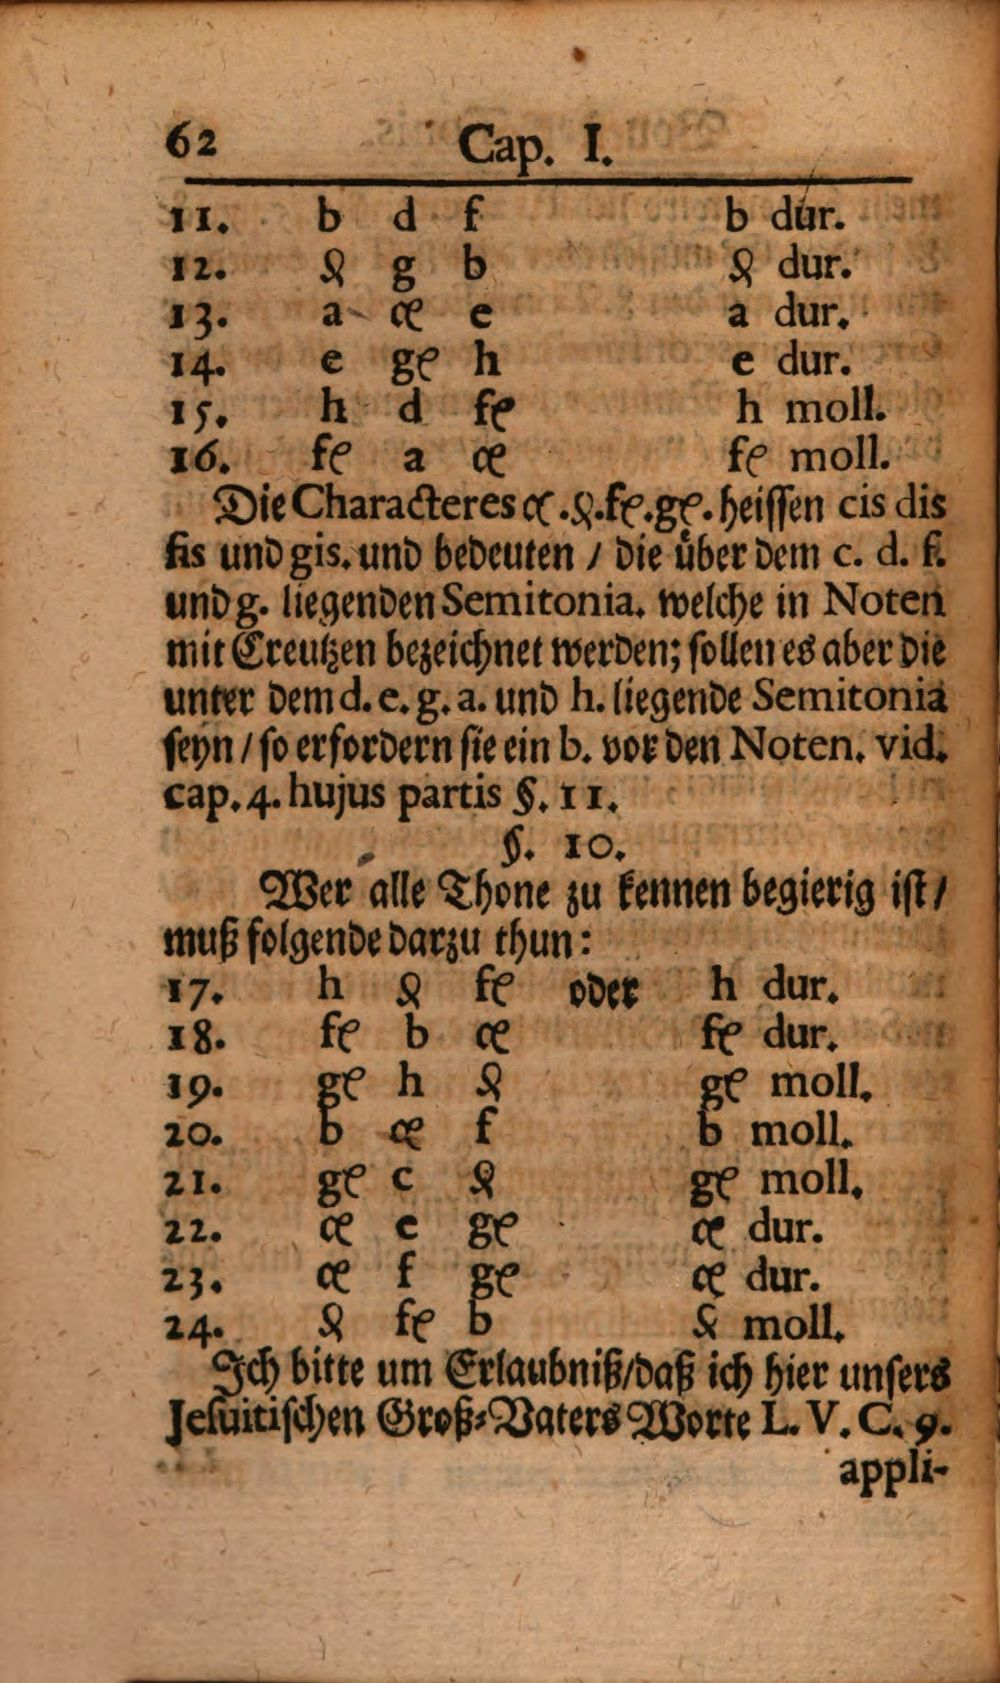 62 Cap. I.
11. b d f b dur.
12. dꝭ g b dꝭ dur.
13. a cꝭ e a dur.
14. e gꝭ h e dur.
15. h d fꝭ h moll.
16. fꝭ a cꝭ fꝭ moll.
Die Characteres cꝭ. dꝭ. fꝭ. gꝭ. heissen cis dis
fis und gis. und bedeuten / die über dem c. d. f.
und g. liegenden Semitonia. welche in Noten
mit Creutzen bezeichnet werden; sollen es aber die
unter dem d. e. g. a. und h. liegende Semitonia
seyn / so erfordern sie ein b. vor den Noten. vid.
cap. 4. hujus partis §. 11.
§. 10.
Wer alle Thone zu kennen begierig ist /
muß folgende darzu thun:
17. h dꝭ fꝭ oder h dur.
18. fꝭ b cꝭ fꝭ dur.
19. gꝭ h dꝭ gꝭ moll.
20. b cꝭ f b moll.
21. gꝭ c dꝭ gꝭ moll.
22. cꝭ e gꝭ cꝭ dur.
23. cꝭ f gꝭ cꝭ dur.
24. dꝭ fꝭ b dꝭ moll.
Ich bitte um Erlaubniß / daß ich hier unsers
Jesuitischen Groß-Vaters Worte L. V. C. 9.
appli-